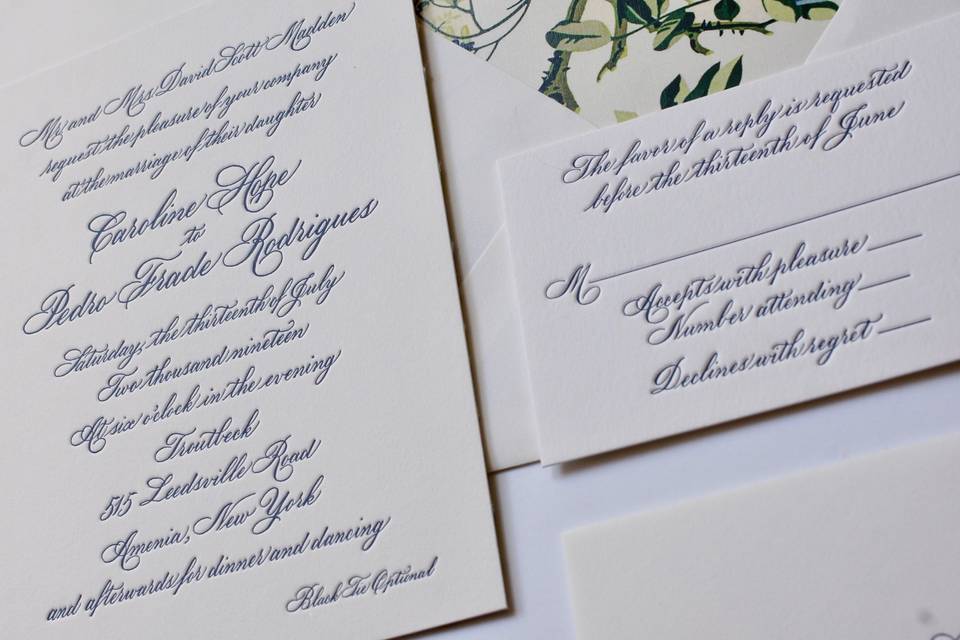 Mr. and Mrs. David Scott Madden
request the pleasure of your company
at the marriage of their daughter
Caroline Hope
to
Pedro Frade Rodrigues
Saturday, the thirteenth of July
Two thousand nineteen
At six o'clock in the evening
Troutbeck
515 Leedsville Road
Amenia, New York
and afterwards for dinner and dancing
Black Tie Optional
The favor of a reply is requested
before the thirteenth of June
M
Accepts with pleasure
Number attending
Declines with regret